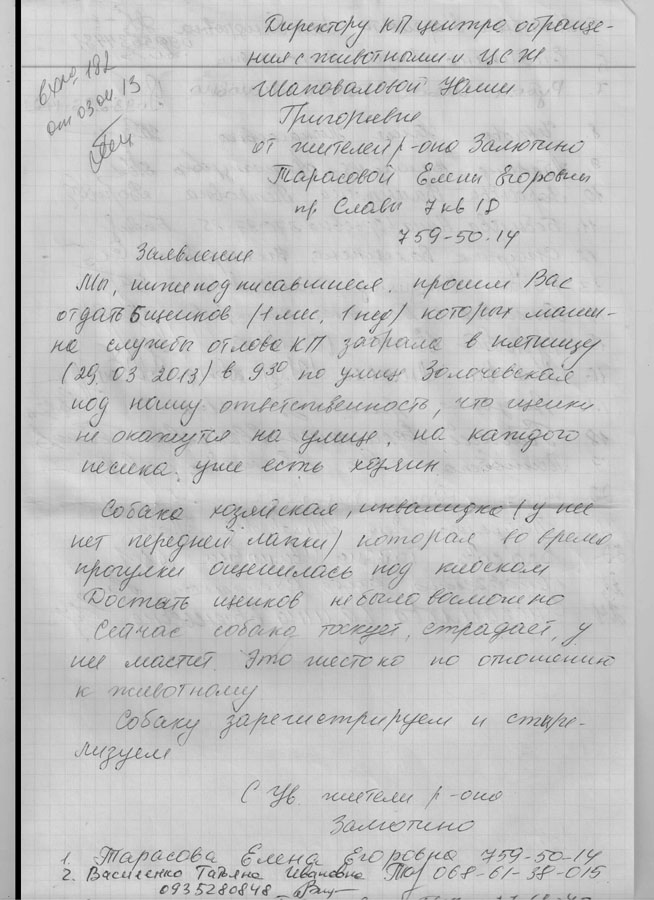 Директору КП центра обраще-
ния с животными и ЦСЖ
Шаповаловой Юлии
Григорьевне
от жителей р-она Залютино
Тарасовой Елены Егоровны
пр. Славы 7 кв 18
759-50-14
вх № 182
от 03.04 13
Заявление
Мы, нижеподписавшиеся, просим Вас
отдать 5 щенков (1 мес, 1 нед) которых маши-
на службы отлова КП забрала в пятницу
(29.03.2013) в 9 30 по улице Золочевская
под нашу ответственность, что щенки
не окажутся на улице, на каждого
песика уже есть хозяин
Собака хозяйская, инвалидка (у нее
нет передней лапки) которая во время
прогулки ощенилась под киоском
Достать щенков не было возможно
Сейчас собака тоскует, страдает, у
нее мастит. Это жестоко по отношению
к животному
Собаку зарегистрируем и стыре-
лизуем
С Ув. жители р-она
Залютино
1. Тарасова Елена Егоровна 759-50-14
2. Василенко Татьяна Ивановна 068-61-38-015
0935280848